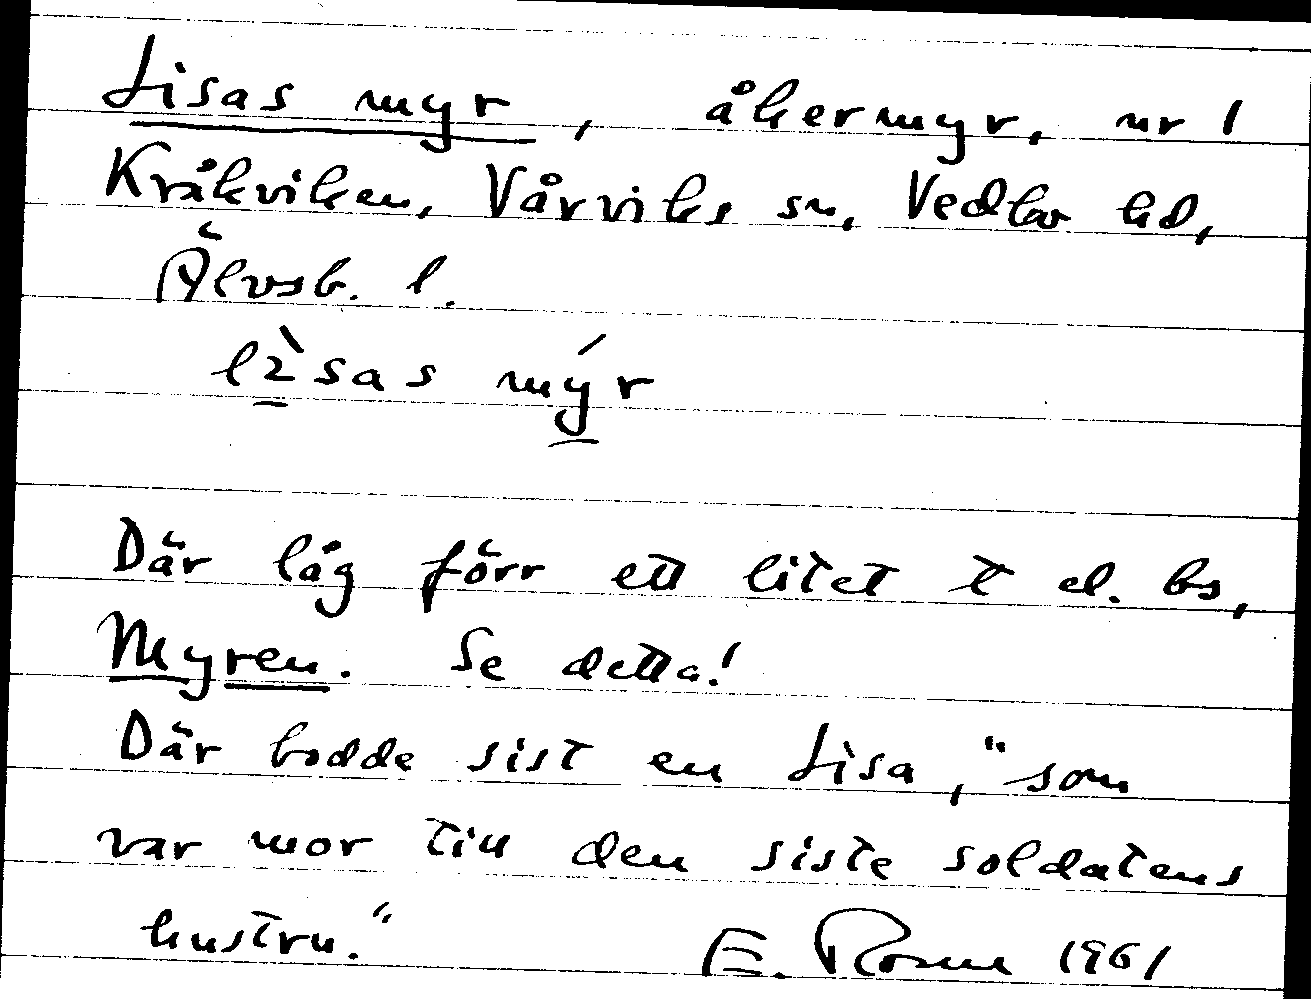 Lisas myr, åkermyr, nr 1
Kråkviken, Vårviks sn, Vedbo hd,
Älvsb. l.
lìsas mýr
Där låg förr ett litet t el. bs,
Myren. Se detta!
Där bodde sist en Lisa, "som
var mor till den siste soldatens
hustru."
E. Rosell 1961